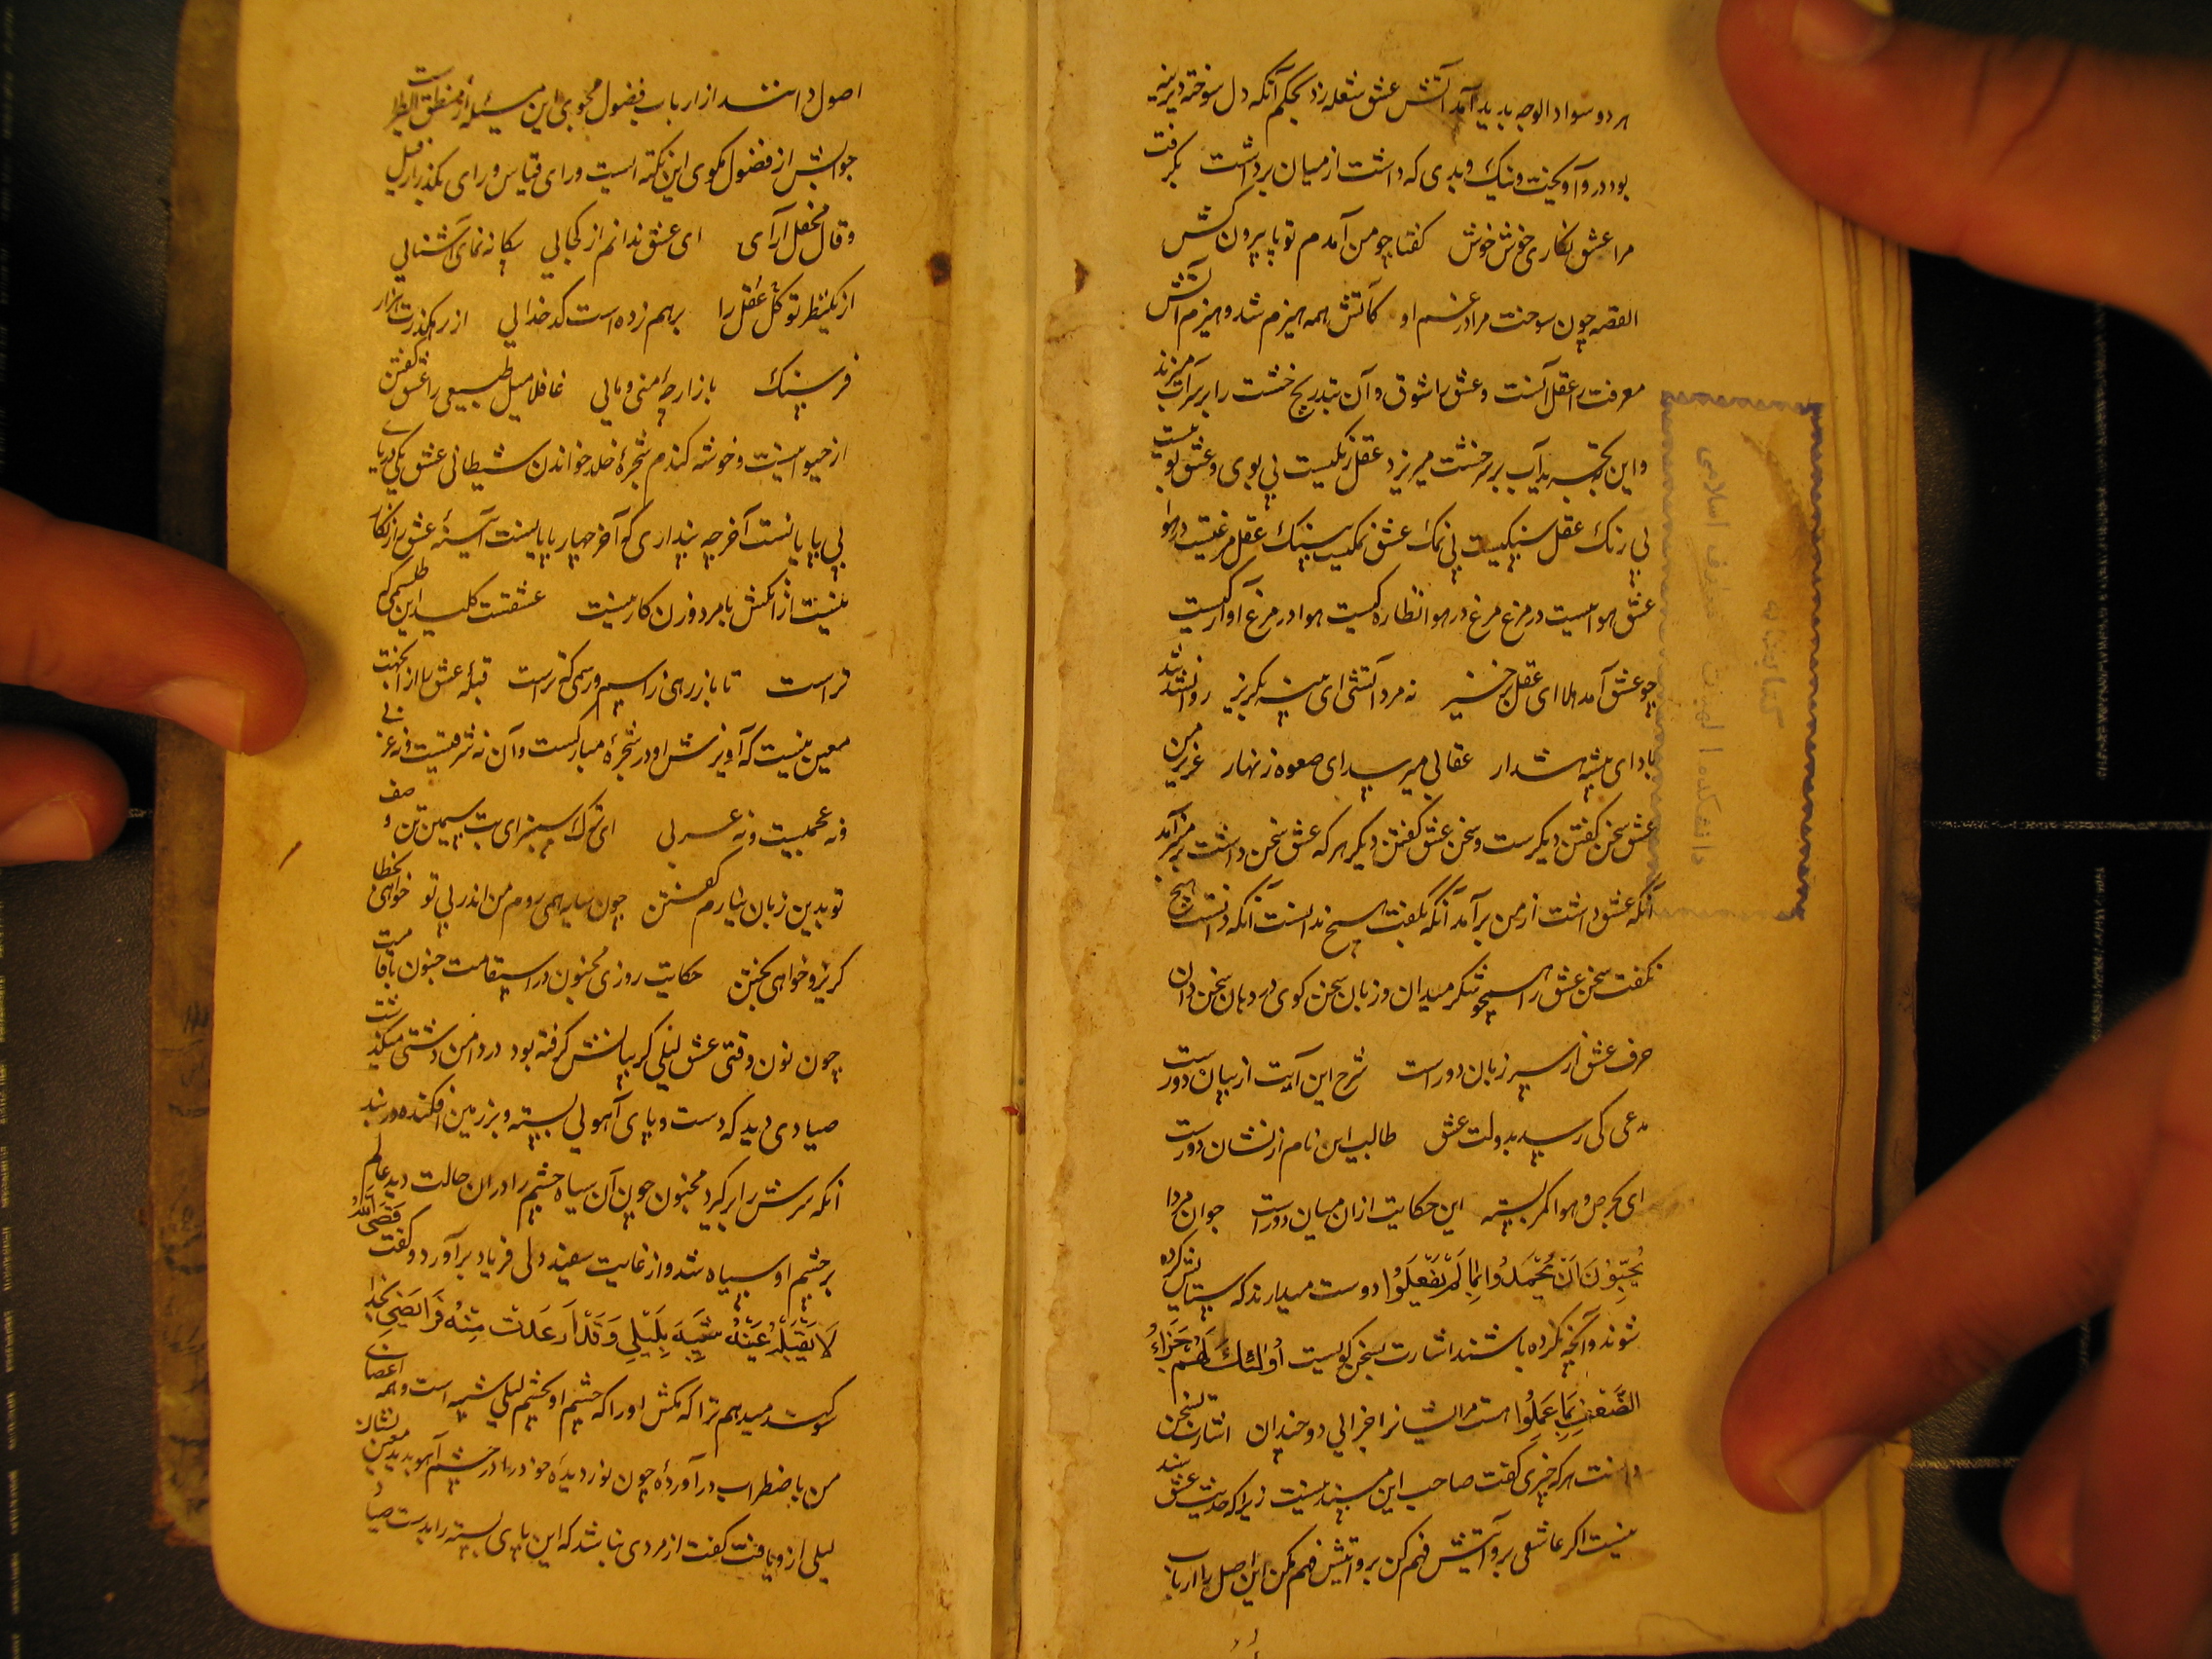 هر دو سواد الوجه پدید آمد آتش عشق شعله زد بحکم آنکه دل سوخته دیرینه
بود درو آویخت و نیک و بدی که داشت از میان برداشت بگرفت
مرا عشق نگاری خوش خوش گفتا چو من آمدم تو پا بیرون کش
القصه چون سوخت مرا در غم او کآتش همه هیزم شد و هیزم آتش
معرفت را عقل آلتست و عشق را شوق و آن بتدریج خشت را بر سر آب میزند
و این بتجرید آب بر سر خشت میریزد عقل رنگیست بی بوی و عشق بوییست
بی رنک عقل سنکیست بی نمک عشق نمکیست بی سنک عقل مرغیست در هوا
عشق هواییست در مرغ مرغ در هوا نظاره کیست هوا در مرغ آواره کیست
چو عشق آمد هلا ای عقل برخیز نه مرد آتشی ای پنبه بگریز روانشد
باد ای پشه هشدار عقابی میرسد ای صعوه زنهار عزیز من
عشق سخن گفتن دیکرست و سخن عشق گفتن دیکر هر که عشق سخن داشت بر منبر آمد
آنکه عشق داشت از من برآمد آنکه بگفت هیچ ندانست آنکه دانست هیچ
نگفت سخن عشق را هیچ شکر میدان و زبان سخن کوی در دهان سخن دان
حرف عشق از سر زبان دور است شرح این آیت از بیان دورست
مدعی کی رسد بدولت عشق طالب این نام از نشان دورست
ای بحرص و هوا کمر بسته این حکایت از ان میان دورست جوان مردا
یُحِبُّونَ اَنْ یُحْمَدُوا بِمَا لَمْ یَفْعَلُوا دوست میدارند که ستایش کرده
شوند و آنچه نکرده باشند اشارت بسخن گویست اُولٰئِكَ لَهُمْ جَزَاءُ
الضِّعْفِ بِمَا عَمِلُوا هست مر ایشانرا جزایی دو چندان اشارت بسخن
دانست هر که چیزی گفت صاحب این مسند نیست زیرا که حدیث عشق
نیست اگر عاشقی بر و آتش فهم کن بر و آتش فهم مکن این اصل را ارباب
اصول دانند از ارباب فضول مجوی این مسئله از منطق الطیرست
جوابش از فضول مگوی این نکته ایست ورای قیاس و رای بگذر از قیل
و قال محفل آرای ای عشق ندانم از کجایی بیگانه نمای آشنایی
از یک نظر تو کل عقل را برهم زده است کدخدایی از رهگذرت هزار
فرسنک بازارچه منی و مایی غافلا میل طبیعی را عشق گفتن
از حیوانیست و خوشه کندم شجره خلد خواندن شیطانی عشق یکی دریای
بی پایانست آخر چه پنداری کو آخر چهار پایانیست آیینه عشق را از نکار
نیست از انکش با مرد و زن کار نیست عشقست کلید این طلسمی که
تراست تا باز رهی ز اسم و رسمی که تراست قبله عشق را از آن جهت
معین نیست که آویزش او در شجره مبارکست و آن نه شرقیست و نه غربی
و نه عجمیست و نه عربی ای ترک سمنبر ای بت سیمین تن وصف
تو بدین زبان نیارم گفتن چون سایه همی روم من اندر پی تو خواهی بخطا
گریز و خواهی بختن حکایت روزی مجنون در استقامت جنون با قامت
چون نون وقتی عشق لیلی گریبانش گرفته بود در دامن دشتی میگذشت
صیادی دید که دست و پای آهویی بسته و بر زمین افکنده در بند
انکه سرش را ببرد مجنون چون آن سیاه چشم را در ان حالت دید عالم
بر چشم او سیاه شد و از غایت سفید دلی فریاد برآورد و گفت قَضَی اللّٰهُ
شَبِیهٌ بِلَیْلِی وَ قَدْ اَرْعَدَتْ مِنْهُ فَرَائِصِی بخدا
سوگند میدهم ترا که مکش او را که چشم او بچشم لیلی شبیه است و همه اعضای
من باضطراب درآورده چون نور دیده خود را در چشم آهو بدید یعنی نشان
لیلی ازو یافت گفت از مردی نباشد که این پای بسته را بدست صیاد